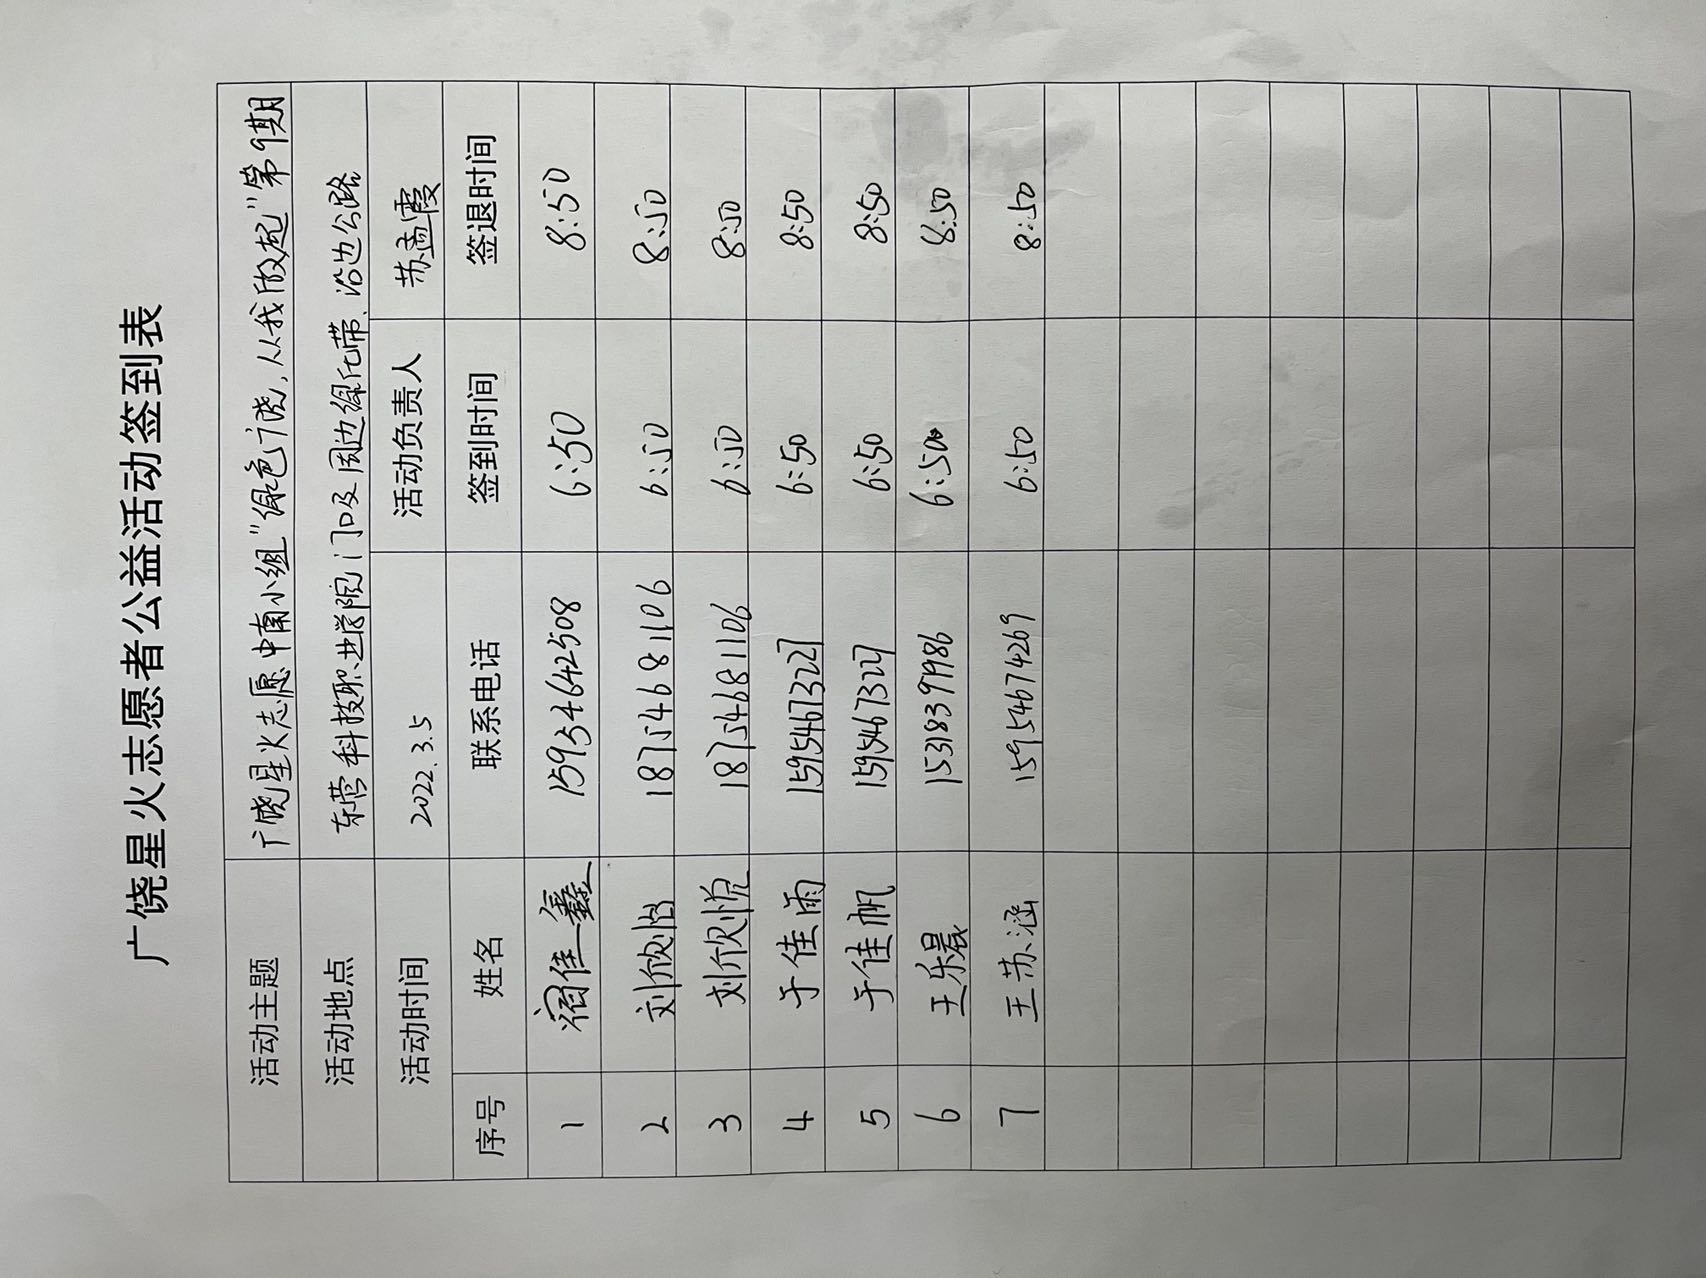 广饶星火志愿者公益活动签到表
活动主题 广饶星火志愿中南小组"绿色广饶,从我做起"第9期
活动地点 东营科技职业学院门口及周边绿化带、沿边公路
活动时间 2022.3.5 活动负责人 苏孟霞
序号 姓名 联系电话 签到时间 签退时间
1 宿佳鑫 15934642508 6:50 8:50
2 刘欣怡 18754681106 6:50 8:50
3 刘欣悦 18754681106 6:50 8:50
4 于佳雨 15954673227 6:50 8:50
5 于佳帆 15954673227 6:50 8:50
6 王乐晨 15318391986 6:50 8:50
7 王苏涵 15954674269 6:50 8:50